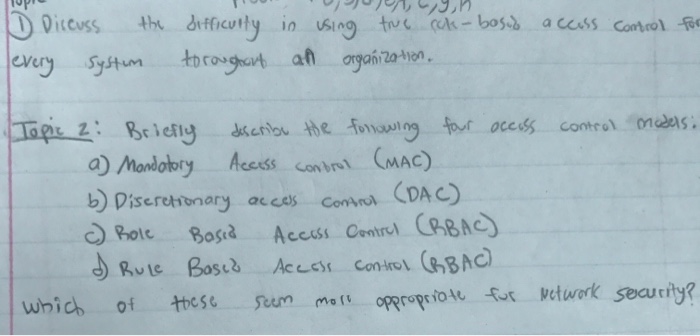 ① Discuss the difficulty in using true role-based access control for
every system throughout an organization.
Topic 2: Briefly describe the following four access control models:
a) Mandatory Access control (MAC)
b) Discretionary access control (DAC)
c) Role Based Access Control (RBAC)
d) Rule Based Access control (RBAC)
which of these seem more appropriate for Network security?